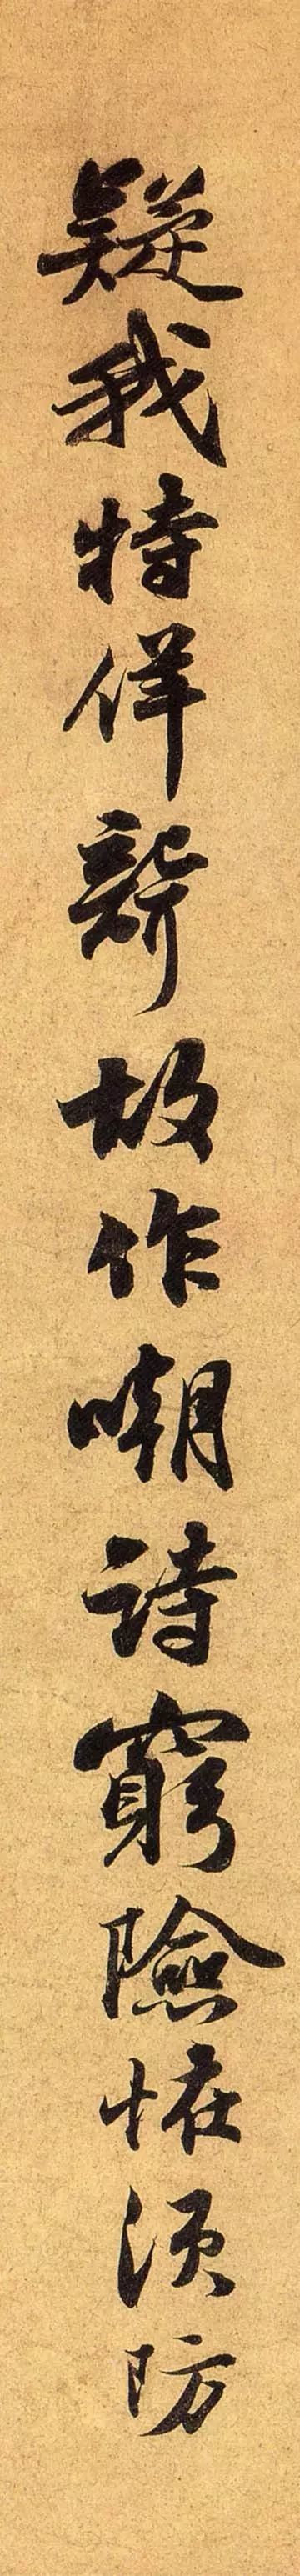 疑我特佯聾故作嘲詩窮險恠須防